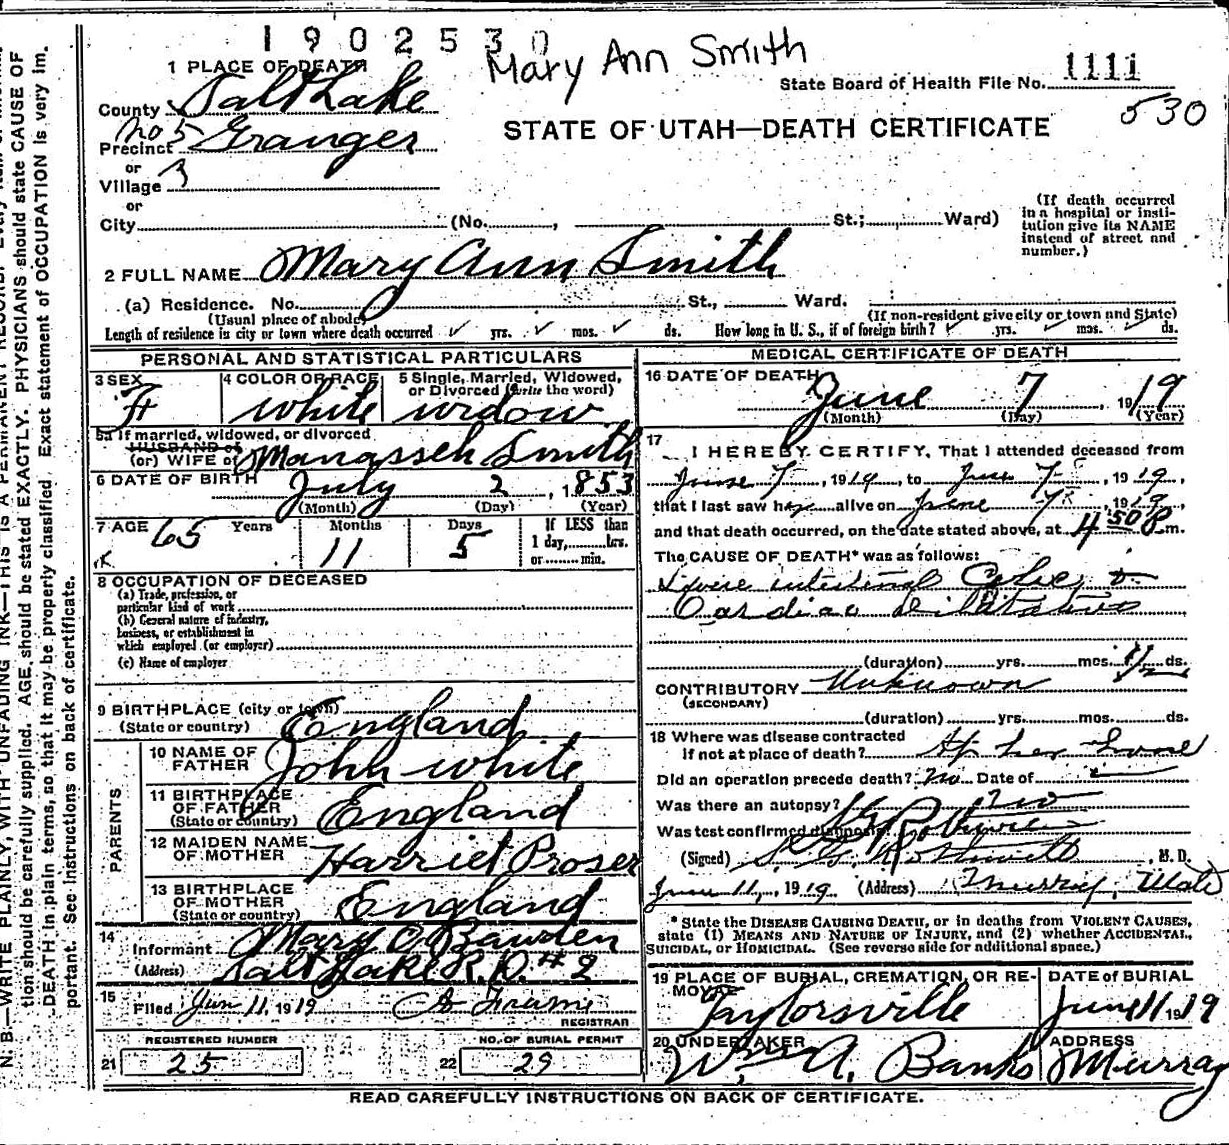 1902530
Mary Ann Smith
1 PLACE OF DEATH
State Board of Health File No. 1111
County Salt Lake
530
No 5 Granger
Precinct
STATE OF UTAH—DEATH CERTIFICATE
or
Village 3
or
City (No. , St.; Ward)
(If death occurred in a hospital or insti-
tution give its NAME
instead of street and
number.)
2 FULL NAME Mary Ann Smith
(a) Residence. No. St., Ward.
(Usual place of abode) (If non-resident give city or town and State)
Length of residence in city or town where death occurred yrs. mos. ds. How long in U. S., if of foreign birth? yrs. mos. ds.
PERSONAL AND STATISTICAL PARTICULARS
3 SEX F
4 COLOR OR RACE white
5 Single, Married, Widowed,
or Divorced (write the word)
widow
5a If married, widowed, or divorced
HUSBAND of
(or) WIFE of Manasseh Smith
6 DATE OF BIRTH July 2, 1853
(Month) (Day) (Year)
7 AGE 65 Years 11 Months 5 Days
If LESS than
1 day, hrs.
or min.
8 OCCUPATION OF DECEASED
(a) Trade, profession, or
particular kind of work
(b) General nature of industry,
business, or establishment in
which employed (or employer)
(c) Name of employer
9 BIRTHPLACE (city or town)
(State or country) England
PARENTS
10 NAME OF
FATHER John White
11 BIRTHPLACE
OF FATHER
(State or country) England
12 MAIDEN NAME
OF MOTHER Harriet Proser
13 BIRTHPLACE
OF MOTHER
(State or country) England
14
Informant Mary C. Bawden
(Address) Salt Lake R.D. # 2
15
Filed Jun 11, 1919
REGISTRAR
REGISTERED NUMBER
21 25
NO. OF BURIAL PERMIT
22 29
MEDICAL CERTIFICATE OF DEATH
16 DATE OF DEATH June 7, 1919
(Month) (Day) (Year)
17 I HEREBY CERTIFY, That I attended deceased from
June 7, 1919, to June 7, 1919,
that I last saw her alive on June 7, 1919,
and that death occurred, on the date stated above, at 4 50 P m.
The CAUSE OF DEATH* was as follows:
intestinal Colic &
Cardiac Dilatation
(duration) yrs. mos. 1/2 ds.
CONTRIBUTORY Unknown
(SECONDARY)
(duration) yrs. mos. ds.
18 Where was disease contracted
if not at place of death? At her home
Did an operation precede death? No Date of
Was there an autopsy? No
Was test confirmed diagnosis?
(Signed) , M. D.
June 11, 1919 (Address) Murray, Utah
* State the DISEASE CAUSING DEATH, or in deaths from VIOLENT CAUSES,
state (1) MEANS AND NATURE OF INJURY, and (2) whether ACCIDENTAL,
SUICIDAL, or HOMICIDAL. (See reverse side for additional space.)
19 PLACE OF BURIAL, CREMATION, OR RE-
MOVAL
Taylorsville
DATE OF BURIAL
June 11 1919
20 UNDERTAKER
Wm A. Banks
ADDRESS
Murray
READ CAREFULLY INSTRUCTIONS ON BACK OF CERTIFICATE.
N. B.—WRITE PLAINLY, WITH UNFADING INK—THIS IS A PERMANENT RECORD.
tion should be carefully supplied. AGE should be stated EXACTLY. PHYSICIANS should state CAUSE OF
DEATH in plain terms, so that it may be properly classified. Exact statement of OCCUPATION is very im-
portant. See instructions on back of certificate.